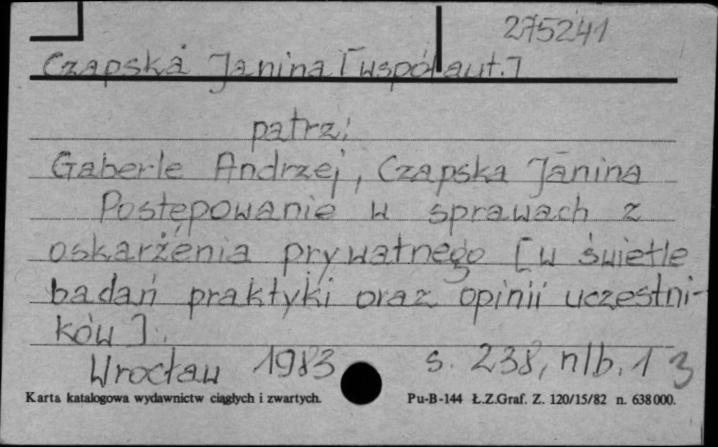 275241
Czapska Janina [współaut.]
patrz:
Gaberle Andrzej, Czapska Janina
Postępowanie w sprawach z
oskarżenia prywatnego [w świetle
badań praktyki oraz opinii uczestni-
ków].
Wrocław 1983 s. 238, nlb. 1 3
Karta katalogowa wydawnictw ciągłych i zwartych. Pu-B-144 Ł.Z.Graf. Z. 120/15/82 n. 638000.